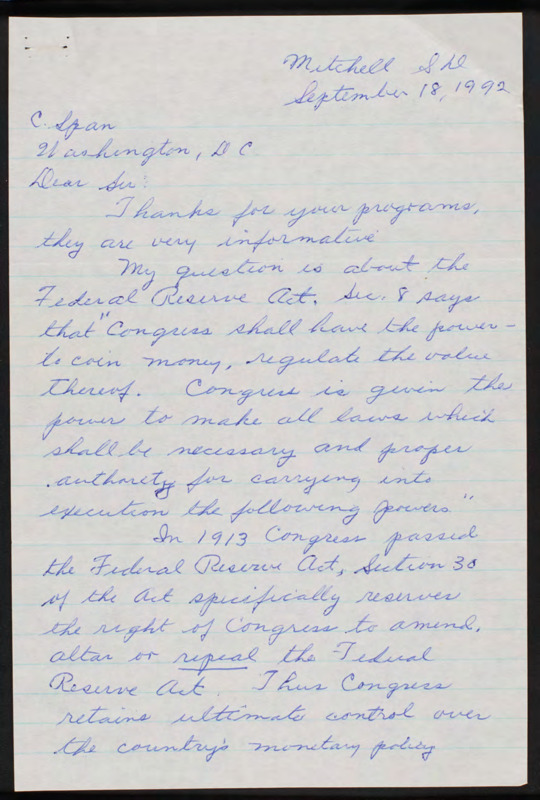 Mitchell S D
September 18, 1992
C. Span
Washington, D C
Dear Sir:
Thanks for your programs,
they are very informative
My question is about the
Federal Reserve Act. Sec. 8 says
that "Congress shall have the power –
to coin money, regulate the value
thereof. Congress is givin the
power to make all laws which
shall be necessary and proper
authority for carrying into
execution the following powers"
In 1913 Congress passed
the Federal Reserve Act, Section 30
of the Act specifically reserves
the right of Congress to amend,
altar or repeal the Federal
Reserve Act. Thus Congress
retains ultimate control over
the country's monetary policy